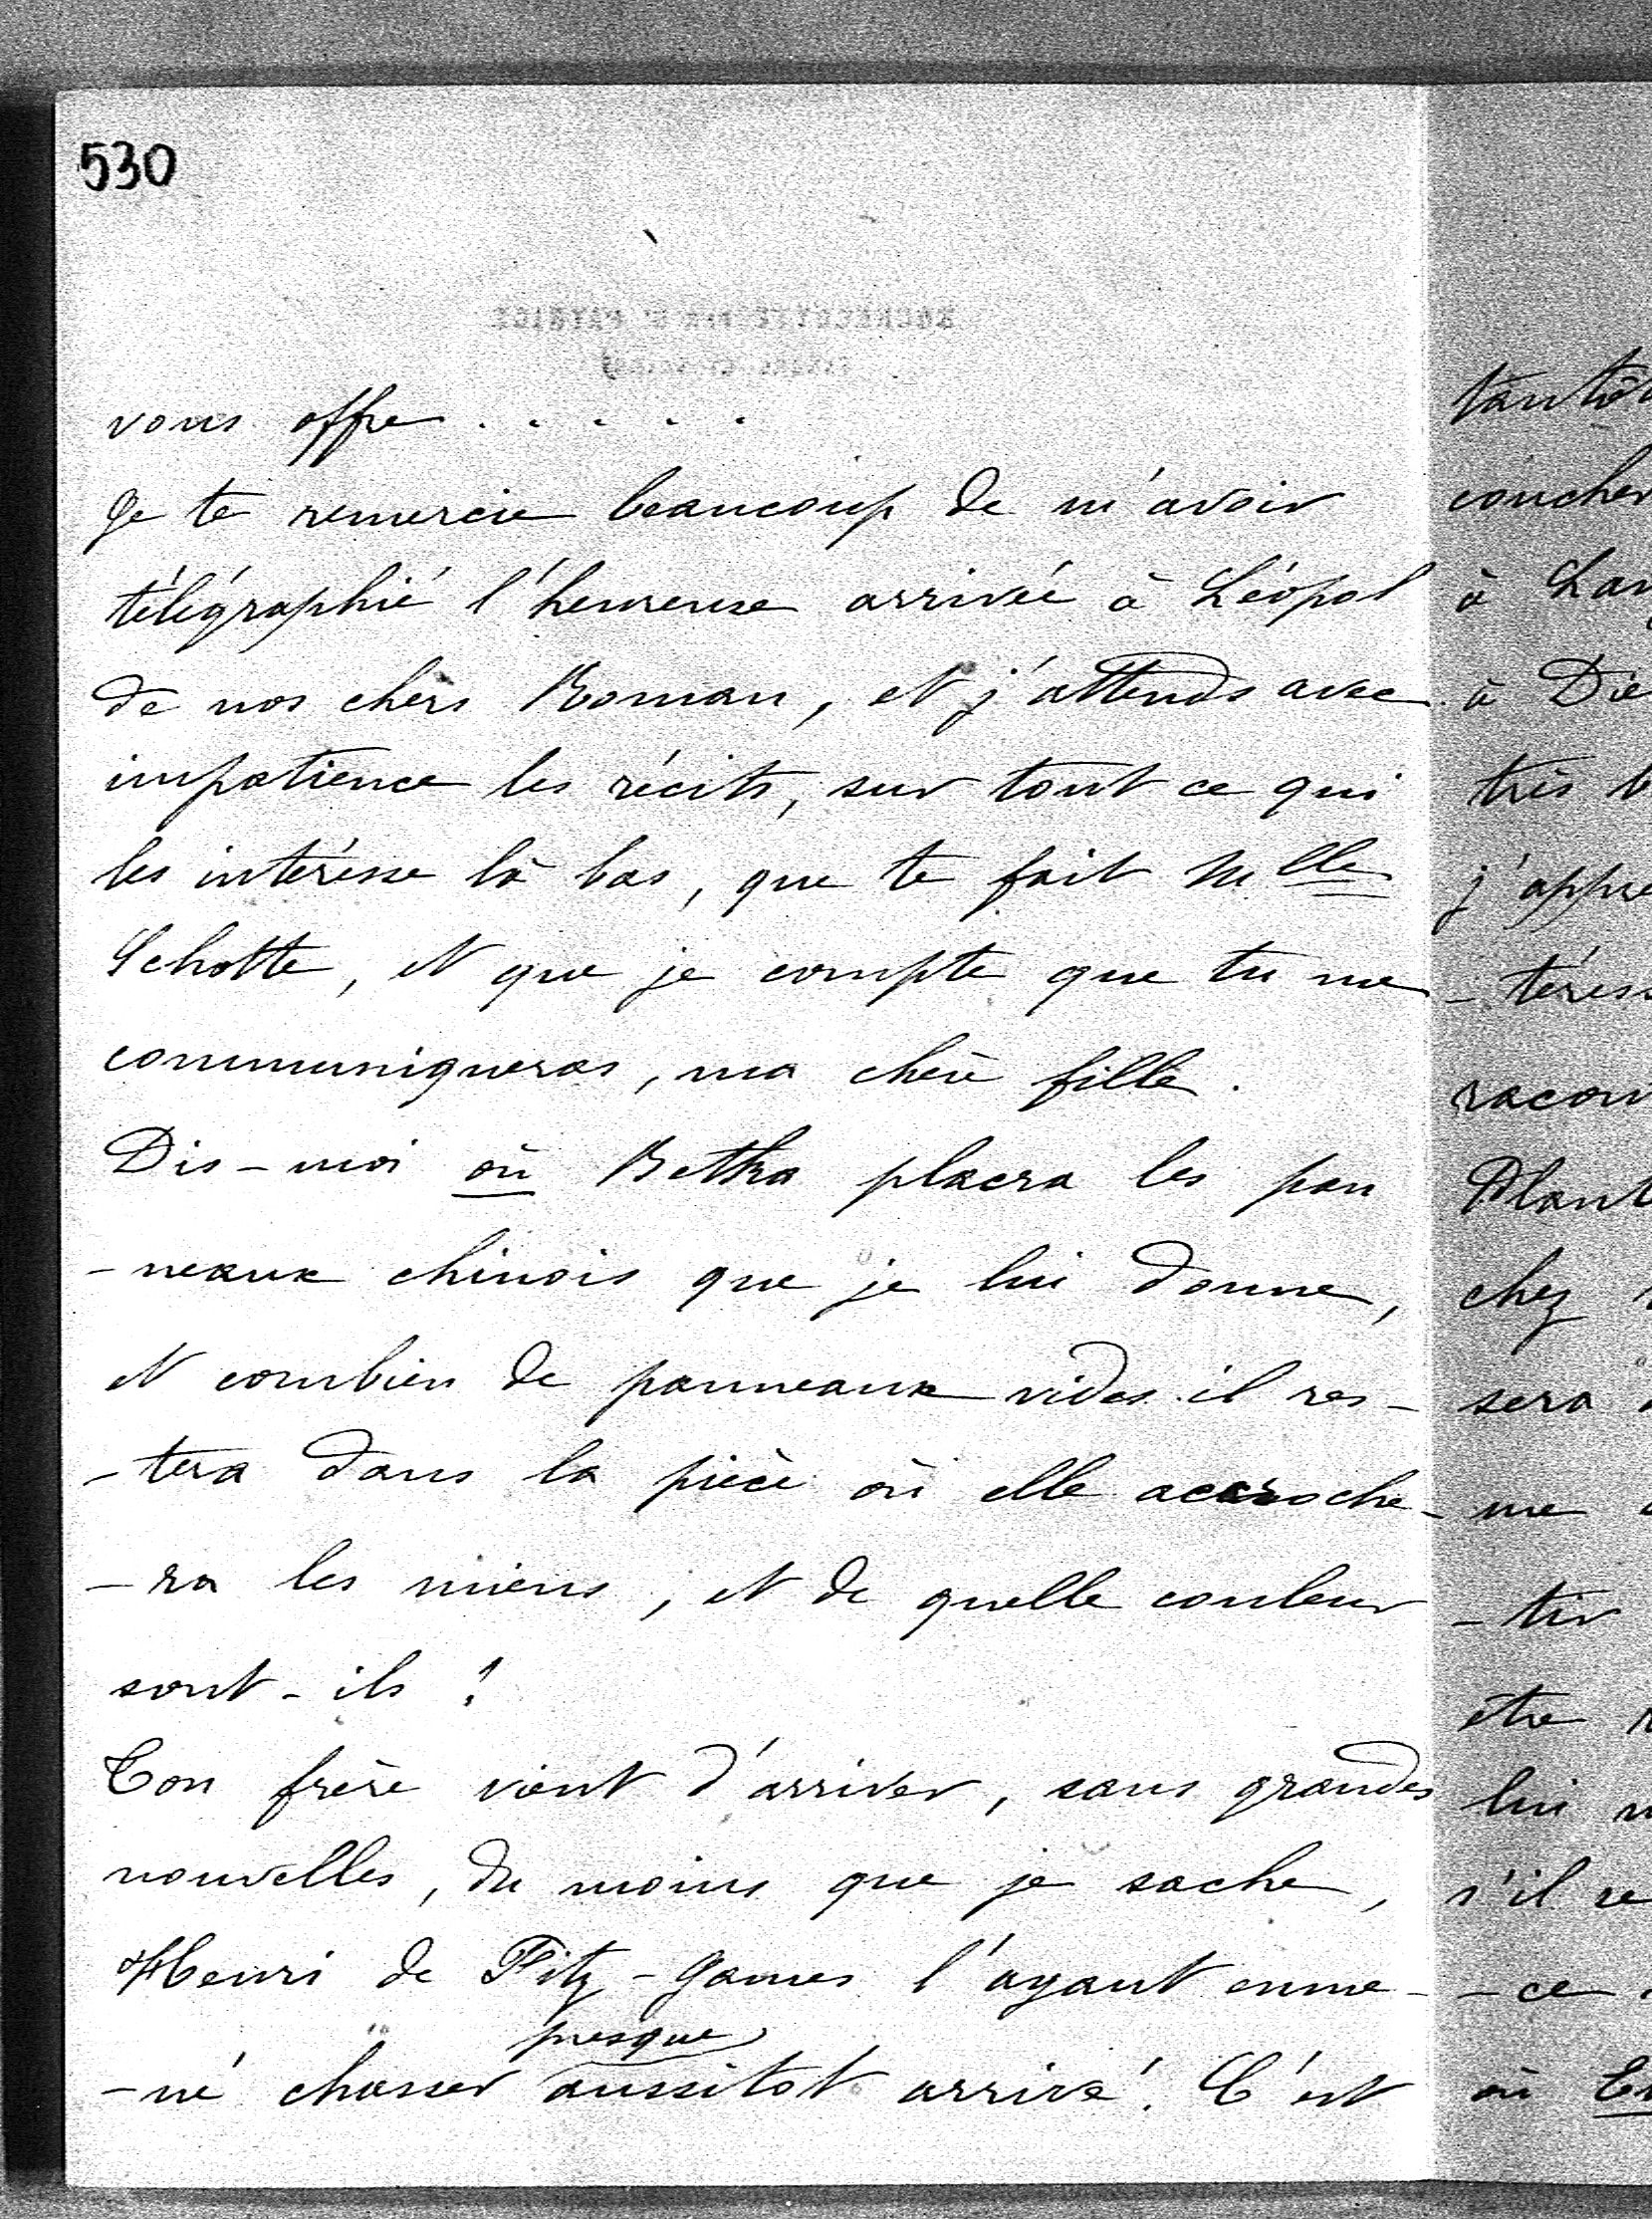 530
vous offre . . . . .
Je te remercie beaucoup de m'avoir
télégraphié l'heureuse arrivée à Léopol
de nos chers Roman, et j'attends avec
impatience les récits, sur tout ce qui
les intéresse là bas, que te fait Mlle
Schotte, et que je compte que tu me
communiqueras, ma chère fille.
Dis-moi où Betka placra les pan
-neaux chinois que je lui donne,
et combien de panneaux vides il res-
-tera dans la pièce où elle accroche-
-ra les miens, et de quelle couleur
sont-ils !
Ton frère vient d'arriver, sans grandes
nouvelles, du moins que je sache,
Henri de Fitz-James l'ayant emme-
presque
-né chasser aussitot arrivé. C'est
tantôt
coucher
à
à
très
j'appre
-téress
racon
chez
sera
me
-tir
être
lui
s'il
-ce
où